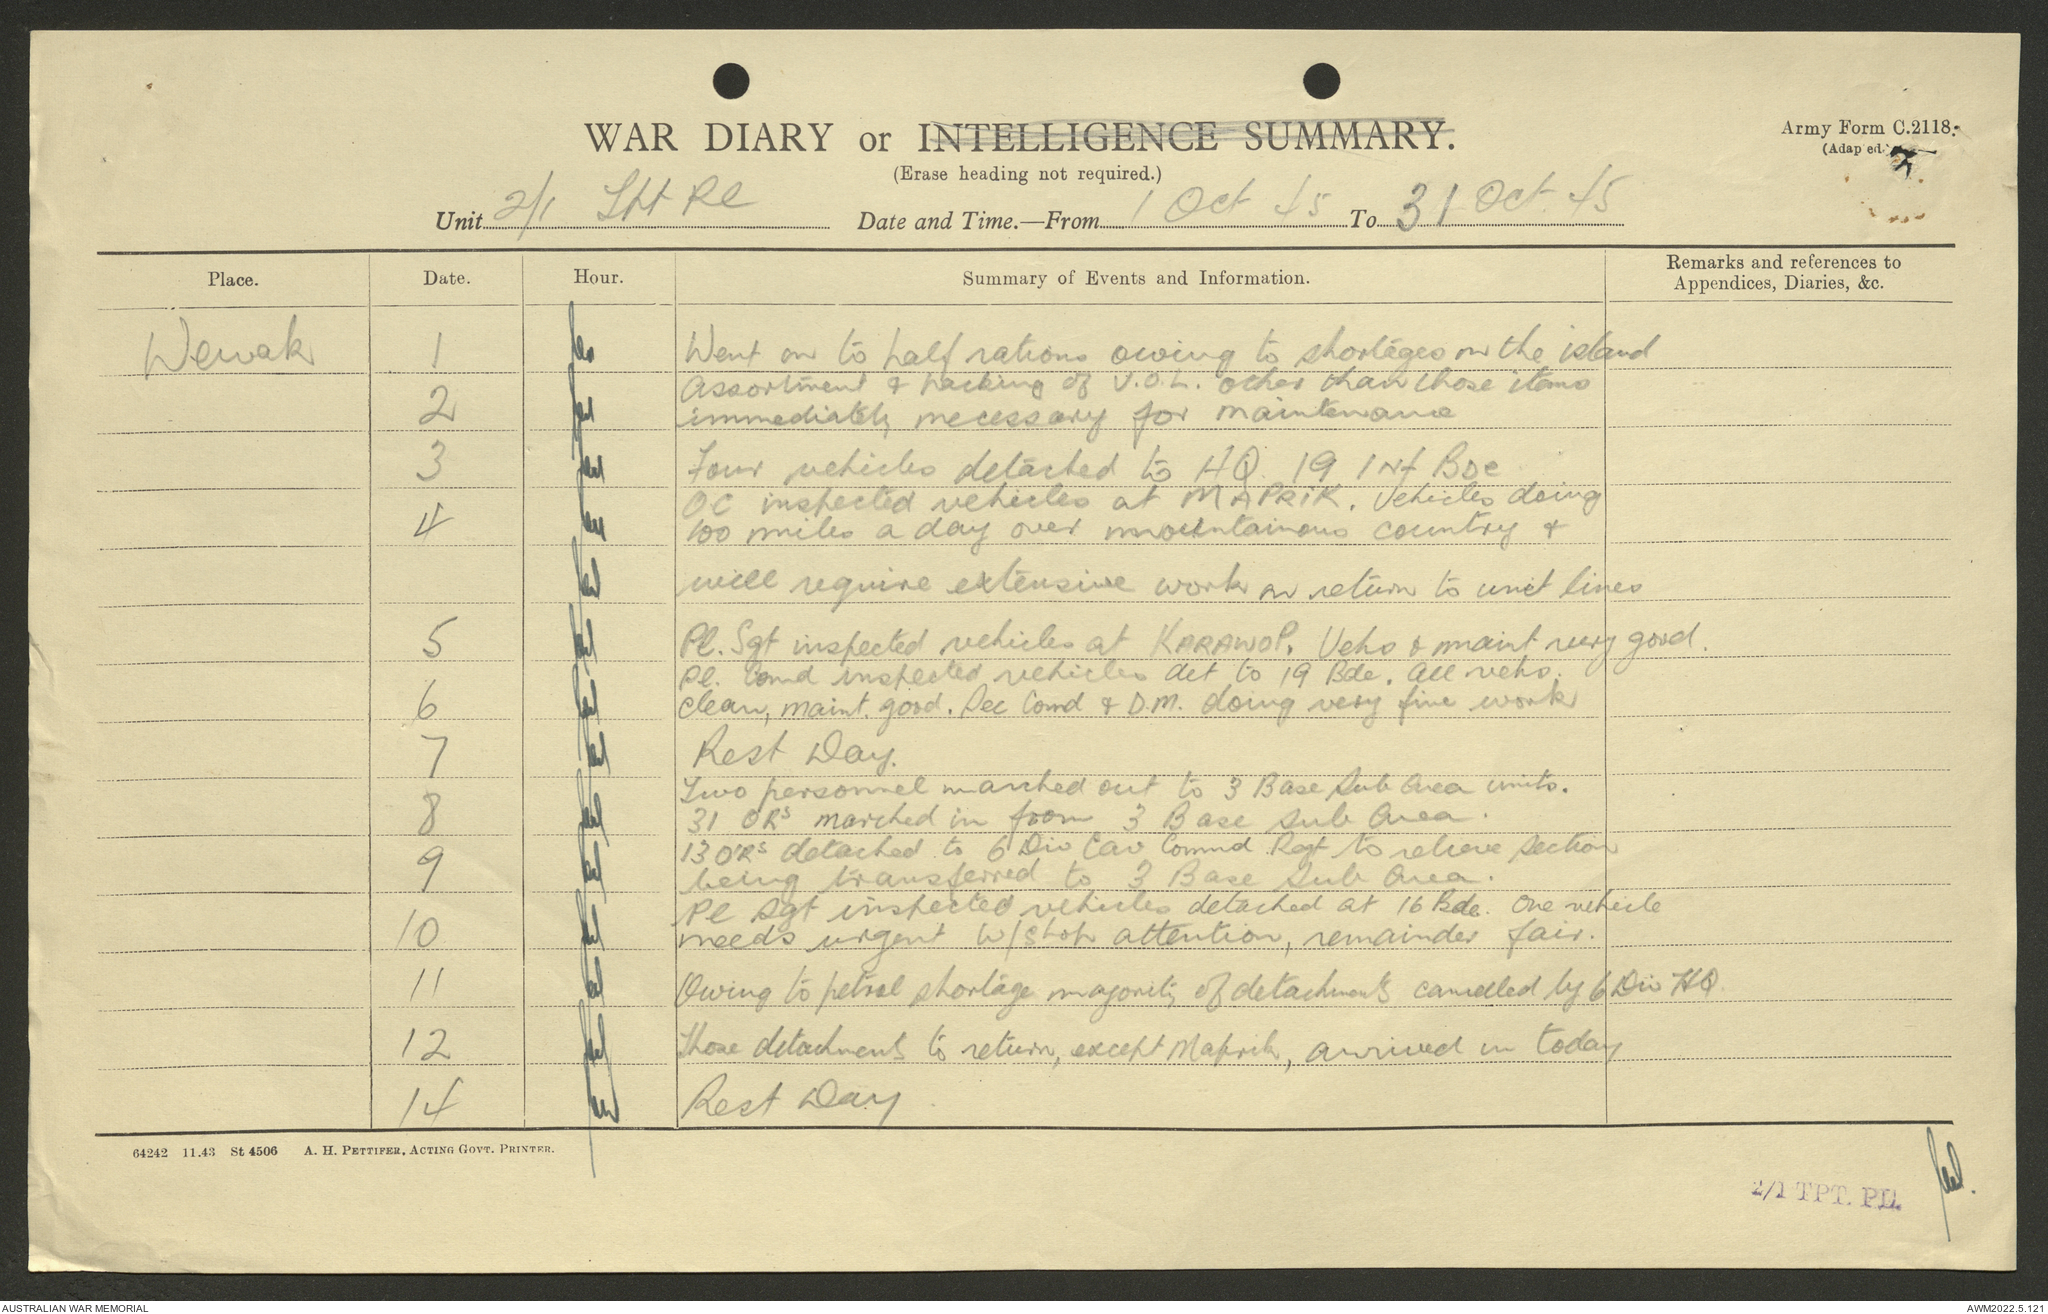 WAR DIARY or INTELLIGENCE SUMMARY.
Army Form C.2118.
(Adapted.)
(Erase heading not required.)
Unit 2/1 Tpt Pl Date and Time.—From 1 Oct 45 To 31 Oct. 45
Place. Date. Hour. Summary of Events and Information. Remarks and references to
Appendices, Diaries, &c.
Wewak 1 Went on to half rations owing to shortages on the island
Assortment & packing of V.O.L. other than those items
2 immediately necessary for maintenance
3 Four vehicles detached to HQ 19 Inf Bde
OC inspected vehicles at MAPRIK. Vehicles doing
4 100 miles a day over mountainous country &
will require extensive work on return to unit lines
5 Pl. Sgt inspected vehicles at KARAWOP. Vehs & maint very good.
Pl. Comd inspected vehicles det to 19 Bde. All vehs.
6 clean, maint. good. Sec Comd & D.M. doing very fine work
7 Rest Day.
Two personnel marched out to 3 Base Sub Area units.
8 31 ORs marched in from 3 Base Sub Area.
13 O'Rs detached to 6 Div Cav Commd Regt to relieve section
9 being transferred to 3 Base Sub Area.
Pl Sgt inspected vehicles detached at 16 Bde. One vehicle
10 needs urgent W/shop attention, remainder fair.
11 Owing to petrol shortage majority of detachments cancelled by 6 Div HQ.
12 Those detachments to return, except Maprik, arrived in today
14 Rest Day
64242 11.43 St 4506 A. H. PETTIFER, ACTING GOVT. PRINTER.
2/1 TPT. PL.
AUSTRALIAN WAR MEMORIAL
AWM2022.5.121